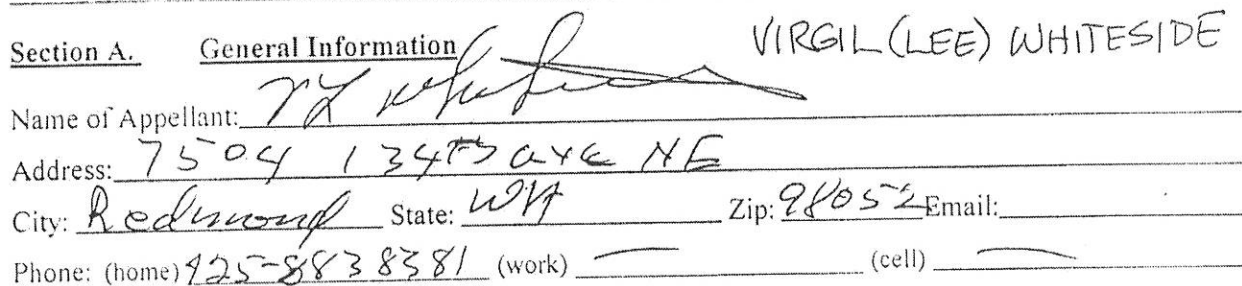 Section A. General Information VIRGIL (LEE) WHITESIDE
Name of Appellant:
Address: 7504 134th ave NE
City: Redmond State: WA Zip: 98052 Email:
Phone: (home) 425-8838381 (work) — (cell) —